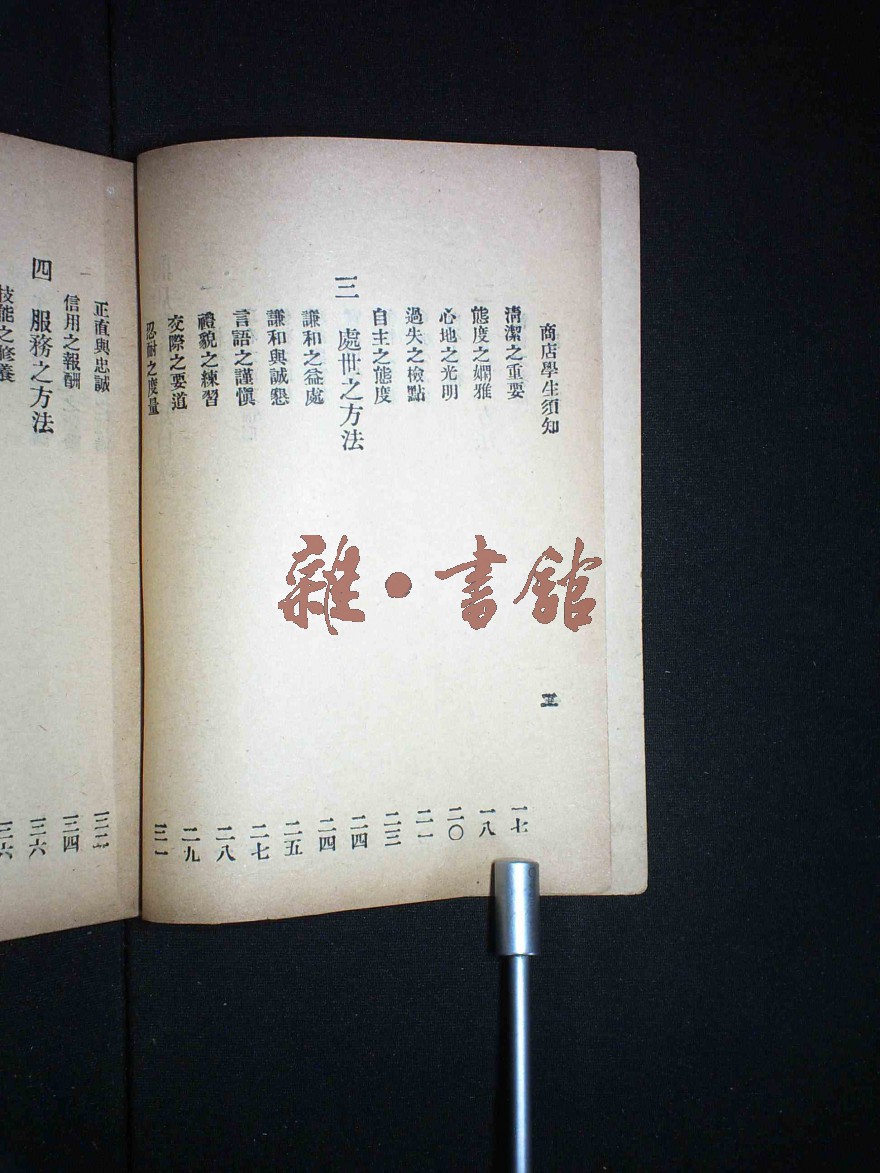 商店學生須知
清潔之重要 一七
態度之嫻雅 一八
心地之光明 二〇
過失之檢點 二一
自主之態度 二三
三 處世之方法 二四
謙和之益處 二四
謙和與誠懇 二五
言語之謹愼 二七
禮貌之練習 二八
交際之要道 二九
忍耐之度量 三一
正直與忠誠
信用之報酬 三四
四 服務之方法 三六
技能之修養 三六
雜·書館